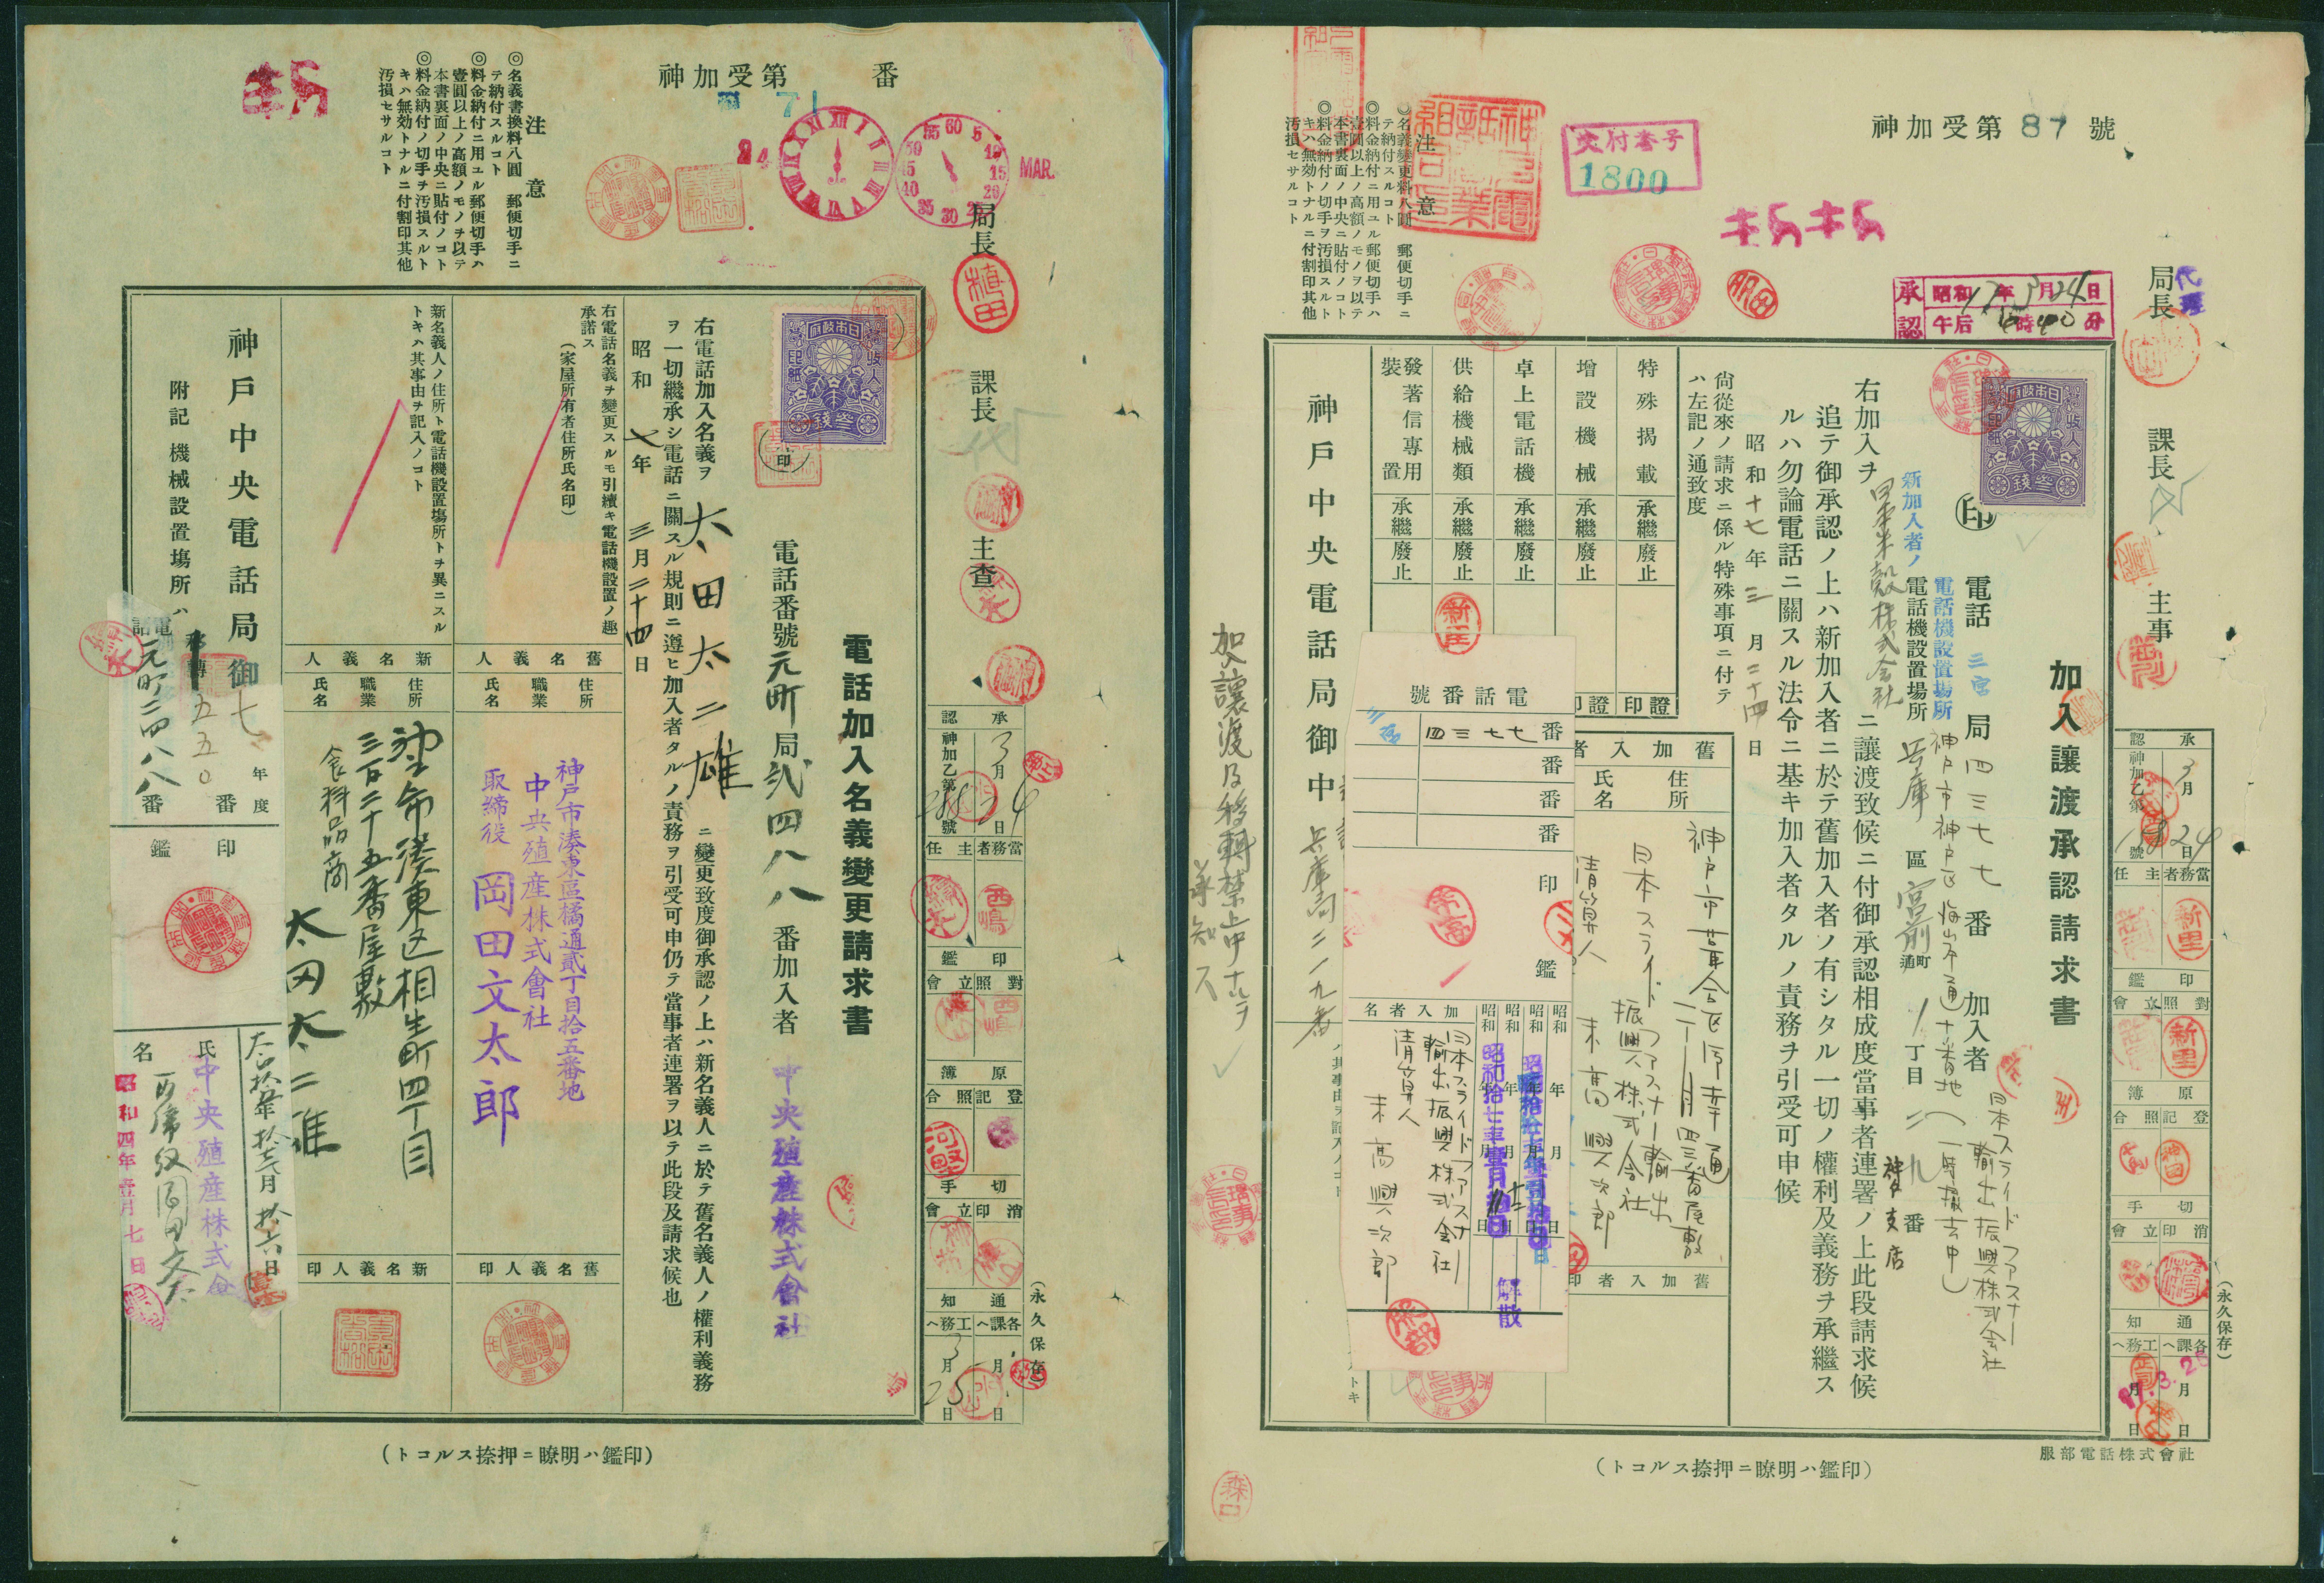 神加受第 番
71
24
MAR.
注意
◎名義書換料八圓 郵便切手ニ
テ納付スルコト
◎料金納付ニ用ユル郵便切手ハ
壹圓以上ノ高額ノモノヲ以テ
本書裏面ノ中央ニ貼付ノコト
◎料金納付ノ切手ヲ汚損スルト
キハ無効トナルニ付割印其他
汚損セサルコト
局長
課長
主査
電話加入名義變更請求書
電話番號元町局貳四八八番加入者
中央殖産株式會社
右電話加入名義ヲ 太田太二雄 ニ變更致度御承認ノ上ハ新名義人ニ於テ舊名義人ノ權利義務
ヲ一切繼承シ電話ニ關スル規則ニ遵ヒ加入者タルノ責務ヲ引受可申仍テ當事者連署ヲ以テ此段及請求候也
昭和 七年 三月二十四日
右電話名義ヲ變更スルモ引續キ電話機設置ノ趣
承諾ス
(家屋所有者住所氏名印)
舊名義人
住所
職業
氏名
神戸市湊東區橘通貳丁目拾五番地
中央殖産株式會社
取締役 岡田文太郎
舊名義人印
新名義人ノ住所ト電話機設置塲所トヲ異ニスル
トキハ其事由ヲ記入ノコト
新名義人
住所
職業
氏名
神戸市湊東区相生町四丁目
三百二十五番屋敷
食料品商
太田太二雄
新名義人印
神戸中央電話局御
附記 機械設置塲所ハ
電話
元町二四八八番
五五〇番
七年度
印鑑
氏名
中央殖産株式會
昭和四年壹月七日
承認
神加乙第 號
3月24日
當務者主任
印鑑
對照立會
原簿
登記照合
切手
消印立會
通知
各課へ工務へ
月 日
3月25日
(永久保存)
(印鑑ハ明瞭ニ押捺スルコト)
神加受第87號
交付番号
1800
注意
◎名義變更料八圓 郵便切手ニ
テ納付スルコト
◎料金納付ニ用ユル郵便切手ハ
壹圓以上ノ高額ノモノヲ以テ
本書裏面ノ中央ニ貼付ノコト
◎料金納付ノ切手ヲ汚損スルト
キハ無効トナルニ付割印其他
汚損セサルコト
代理
局長
課長
主事
承認
昭和17年3月24日
午后 時40分
加入讓渡承認請求書
電話 三宮局四三七七番 加入者
日本スライドファスナー
輸出振興株式会社
神戸市神戸区海岸通十番地(一時撤去中)
新加入者ノ
電話機設置場所
電話機設置場所
兵庫區宮前通町1丁目二九番
神戸支店
右加入ヲ 日本米穀株式会社 ニ讓渡致候ニ付御承認相成度當事者連署ノ上此段請求候
追テ御承認ノ上ハ新加入者ニ於テ舊加入者ノ有シタル一切ノ權利及義務ヲ承繼ス
ルハ勿論電話ニ關スル法令ニ基キ加入者タルノ責務ヲ引受可申候
昭和十七年三月二十四日
尚從來ノ請求ニ係ル特殊事項ニ付テ
ハ左記ノ通致度
特殊揭載 承繼 廢止
增設機械 承繼 廢止
卓上電話機 承繼 廢止
供給機械類 承繼 廢止
發著信專用裝置 承繼 廢止
證印
證印
舊加入者
住所
氏名
神戸市葺合区
日本スライドファスナー輸出
振興株式会社
清算人 末高興次郎
舊加入者印
電話番號
三宮
四三七七番
番
番
番
印鑑
加入者名
日本スライドファスナー
輸出振興株式会社
清算人
末高興次郎
昭和 年 月 日
昭和 年 月 日
昭和 年 月 日
昭和 年 月 日
解散
神戸中央電話局御中
兵庫局二一九番
加入讓渡及移轉禁止中
承知
承認
神加乙第 號
3月24日
當務者主任
印鑑
對照立會
原簿
登記照合
切手
消印立會
通知
各課へ工務へ
17.3.26
月 日
月 日
(永久保存)
服部電話株式會社
(印鑑ハ明瞭ニ押捺スルコト)